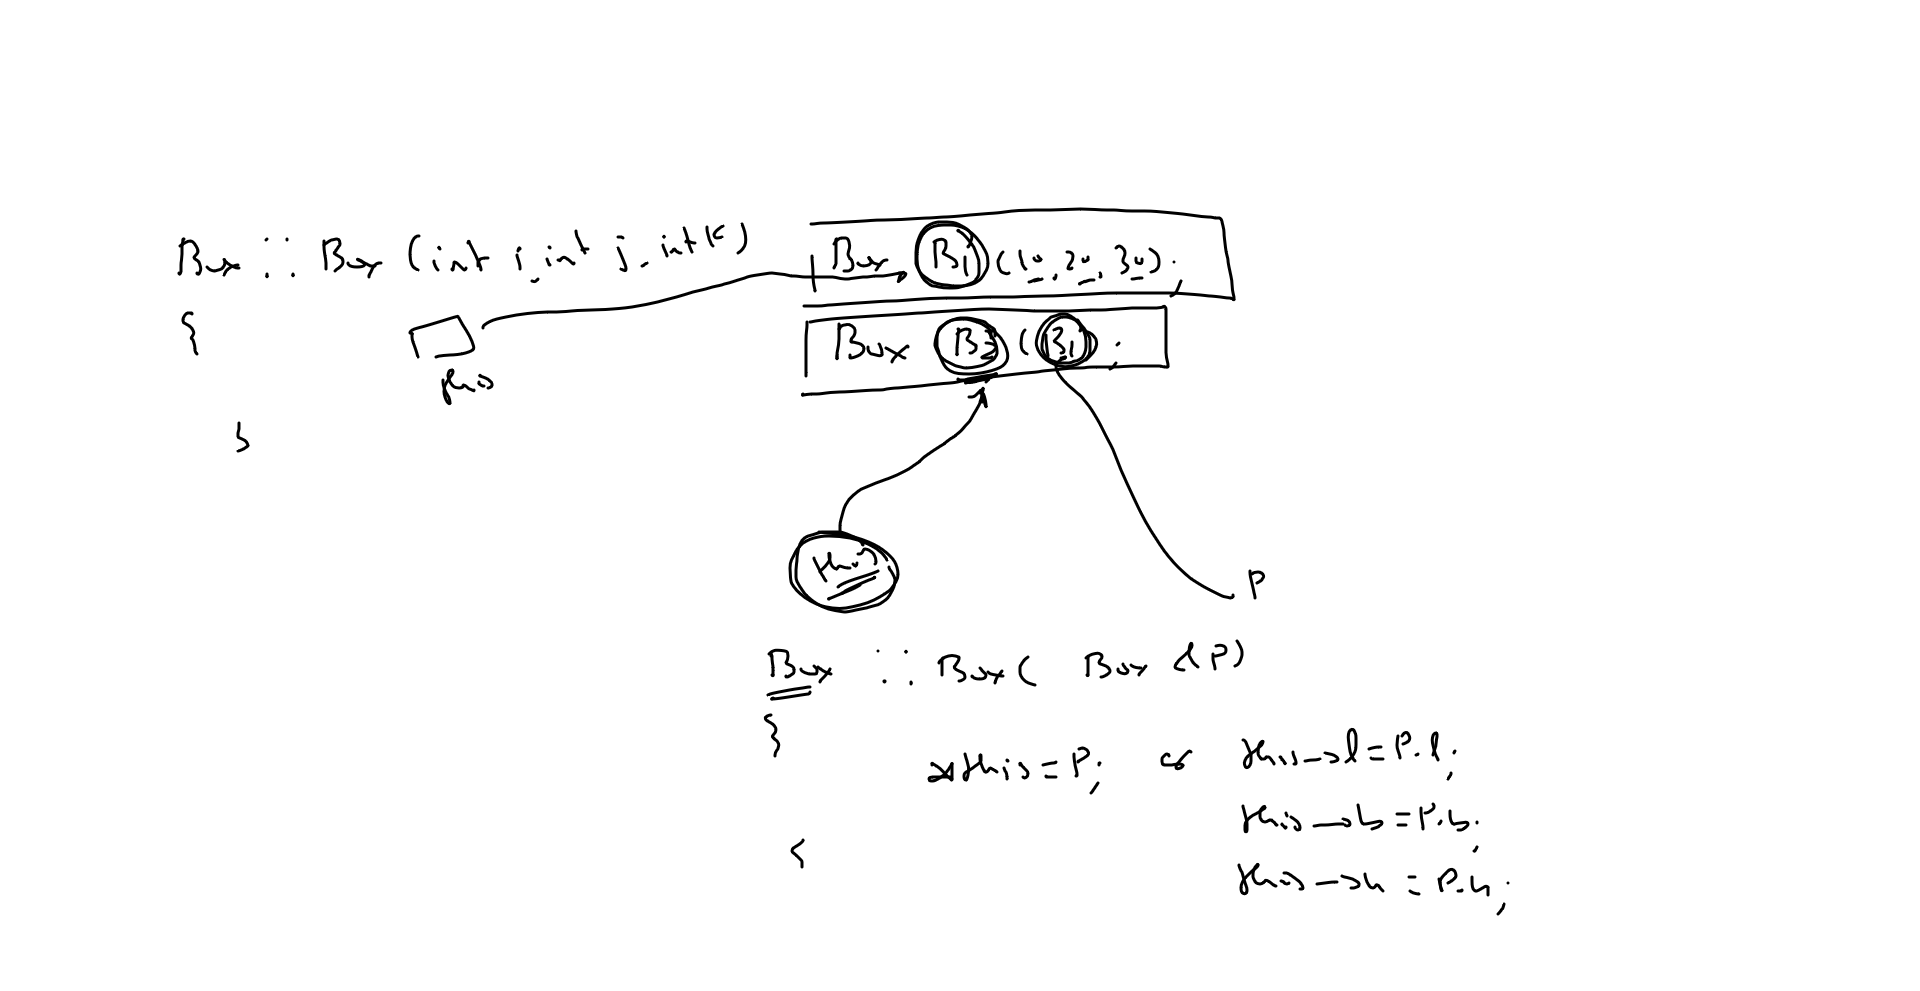 Box :: Box (int i, int j, int k)
{
this
}
Box B1 (10, 20, 30);
Box B2 (B1);
this
P
Box :: Box( Box &P)
{
*this = P; or this->l = P.l;
this->b = P.b;
this->h = P.h;
}